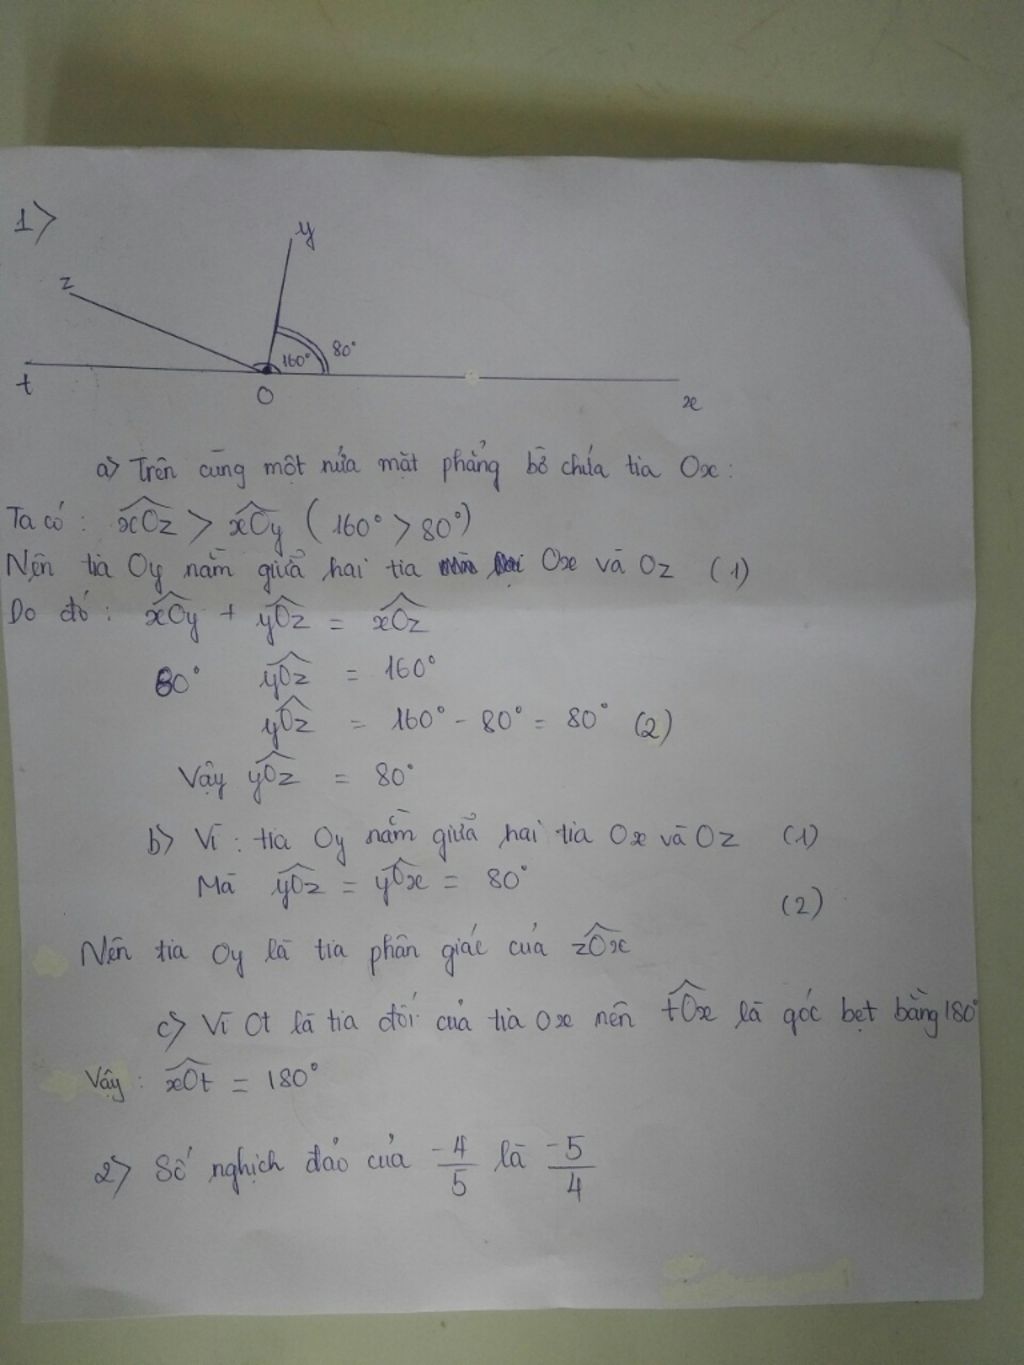 1)
y
z
80°
160°
t
O
x
a) Trên cùng một nửa mặt phẳng bờ chứa tia Ox:
Ta có: xOz > xOy (160° > 80°)
Nên tia Oy nằm giữa hai tia Ox và Oz (1)
Do đó: xOy + yOz = xOz
80° yOz = 160°
yOz = 160° - 80° = 80° (2)
Vậy yOz = 80°
b) Vì: tia Oy nằm giữa hai tia Ox và Oz (1)
Mà yOz = yOx = 80°
(2)
Nên tia Oy là tia phân giác của zOx
c) Vì Ot là tia đối của tia Ox nên tOx là góc bẹt bằng 180°
Vậy: xOt = 180°
2) Số nghịch đảo của -4/5 là -5/4